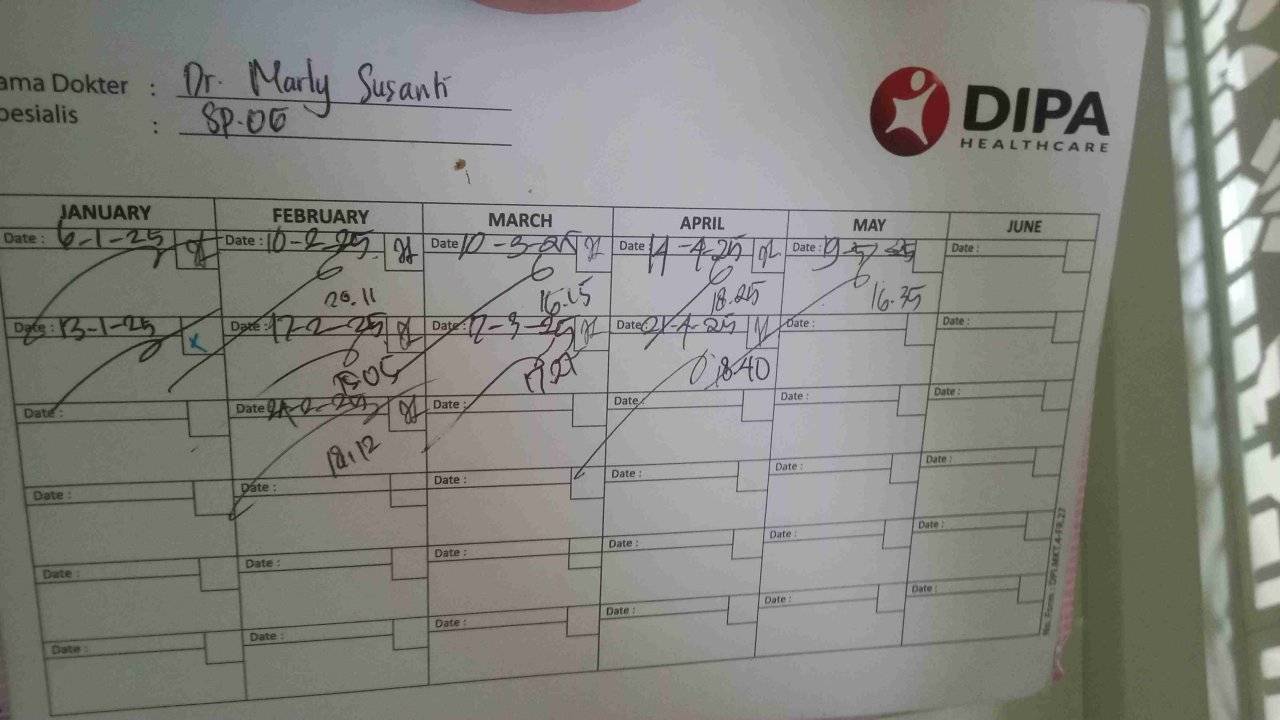 ama Dokter : Dr. Marly Susanti
pesialis : SP.OG
DIPA
HEALTHCARE
JANUARY FEBRUARY MARCH APRIL MAY JUNE
Date : 6-1-25 Date : 10-2-25 Date 10-3-25 Date 14-4-25 Date : 19-5-25 Date :
20.11 16.15 18.25 16.35
Date : 13-1-25 Date : 17-2-25 Date : Date 21-4-25 Date : Date :
18.40
Date : Date 24-2-25 Date : Date : Date : Date :
18.12
Date : Date : Date : Date : Date : Date :
Date : Date : Date : Date : Date : Date :
Date : Date : Date : Date : Date : Date :
No. Form : DPI.MKT.4-FR.27